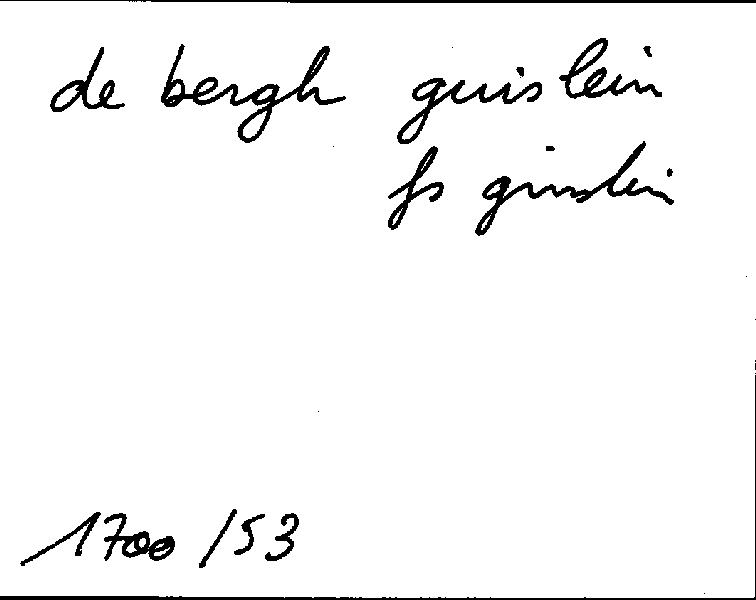 de bergh guislein
fs guislein
1700/53